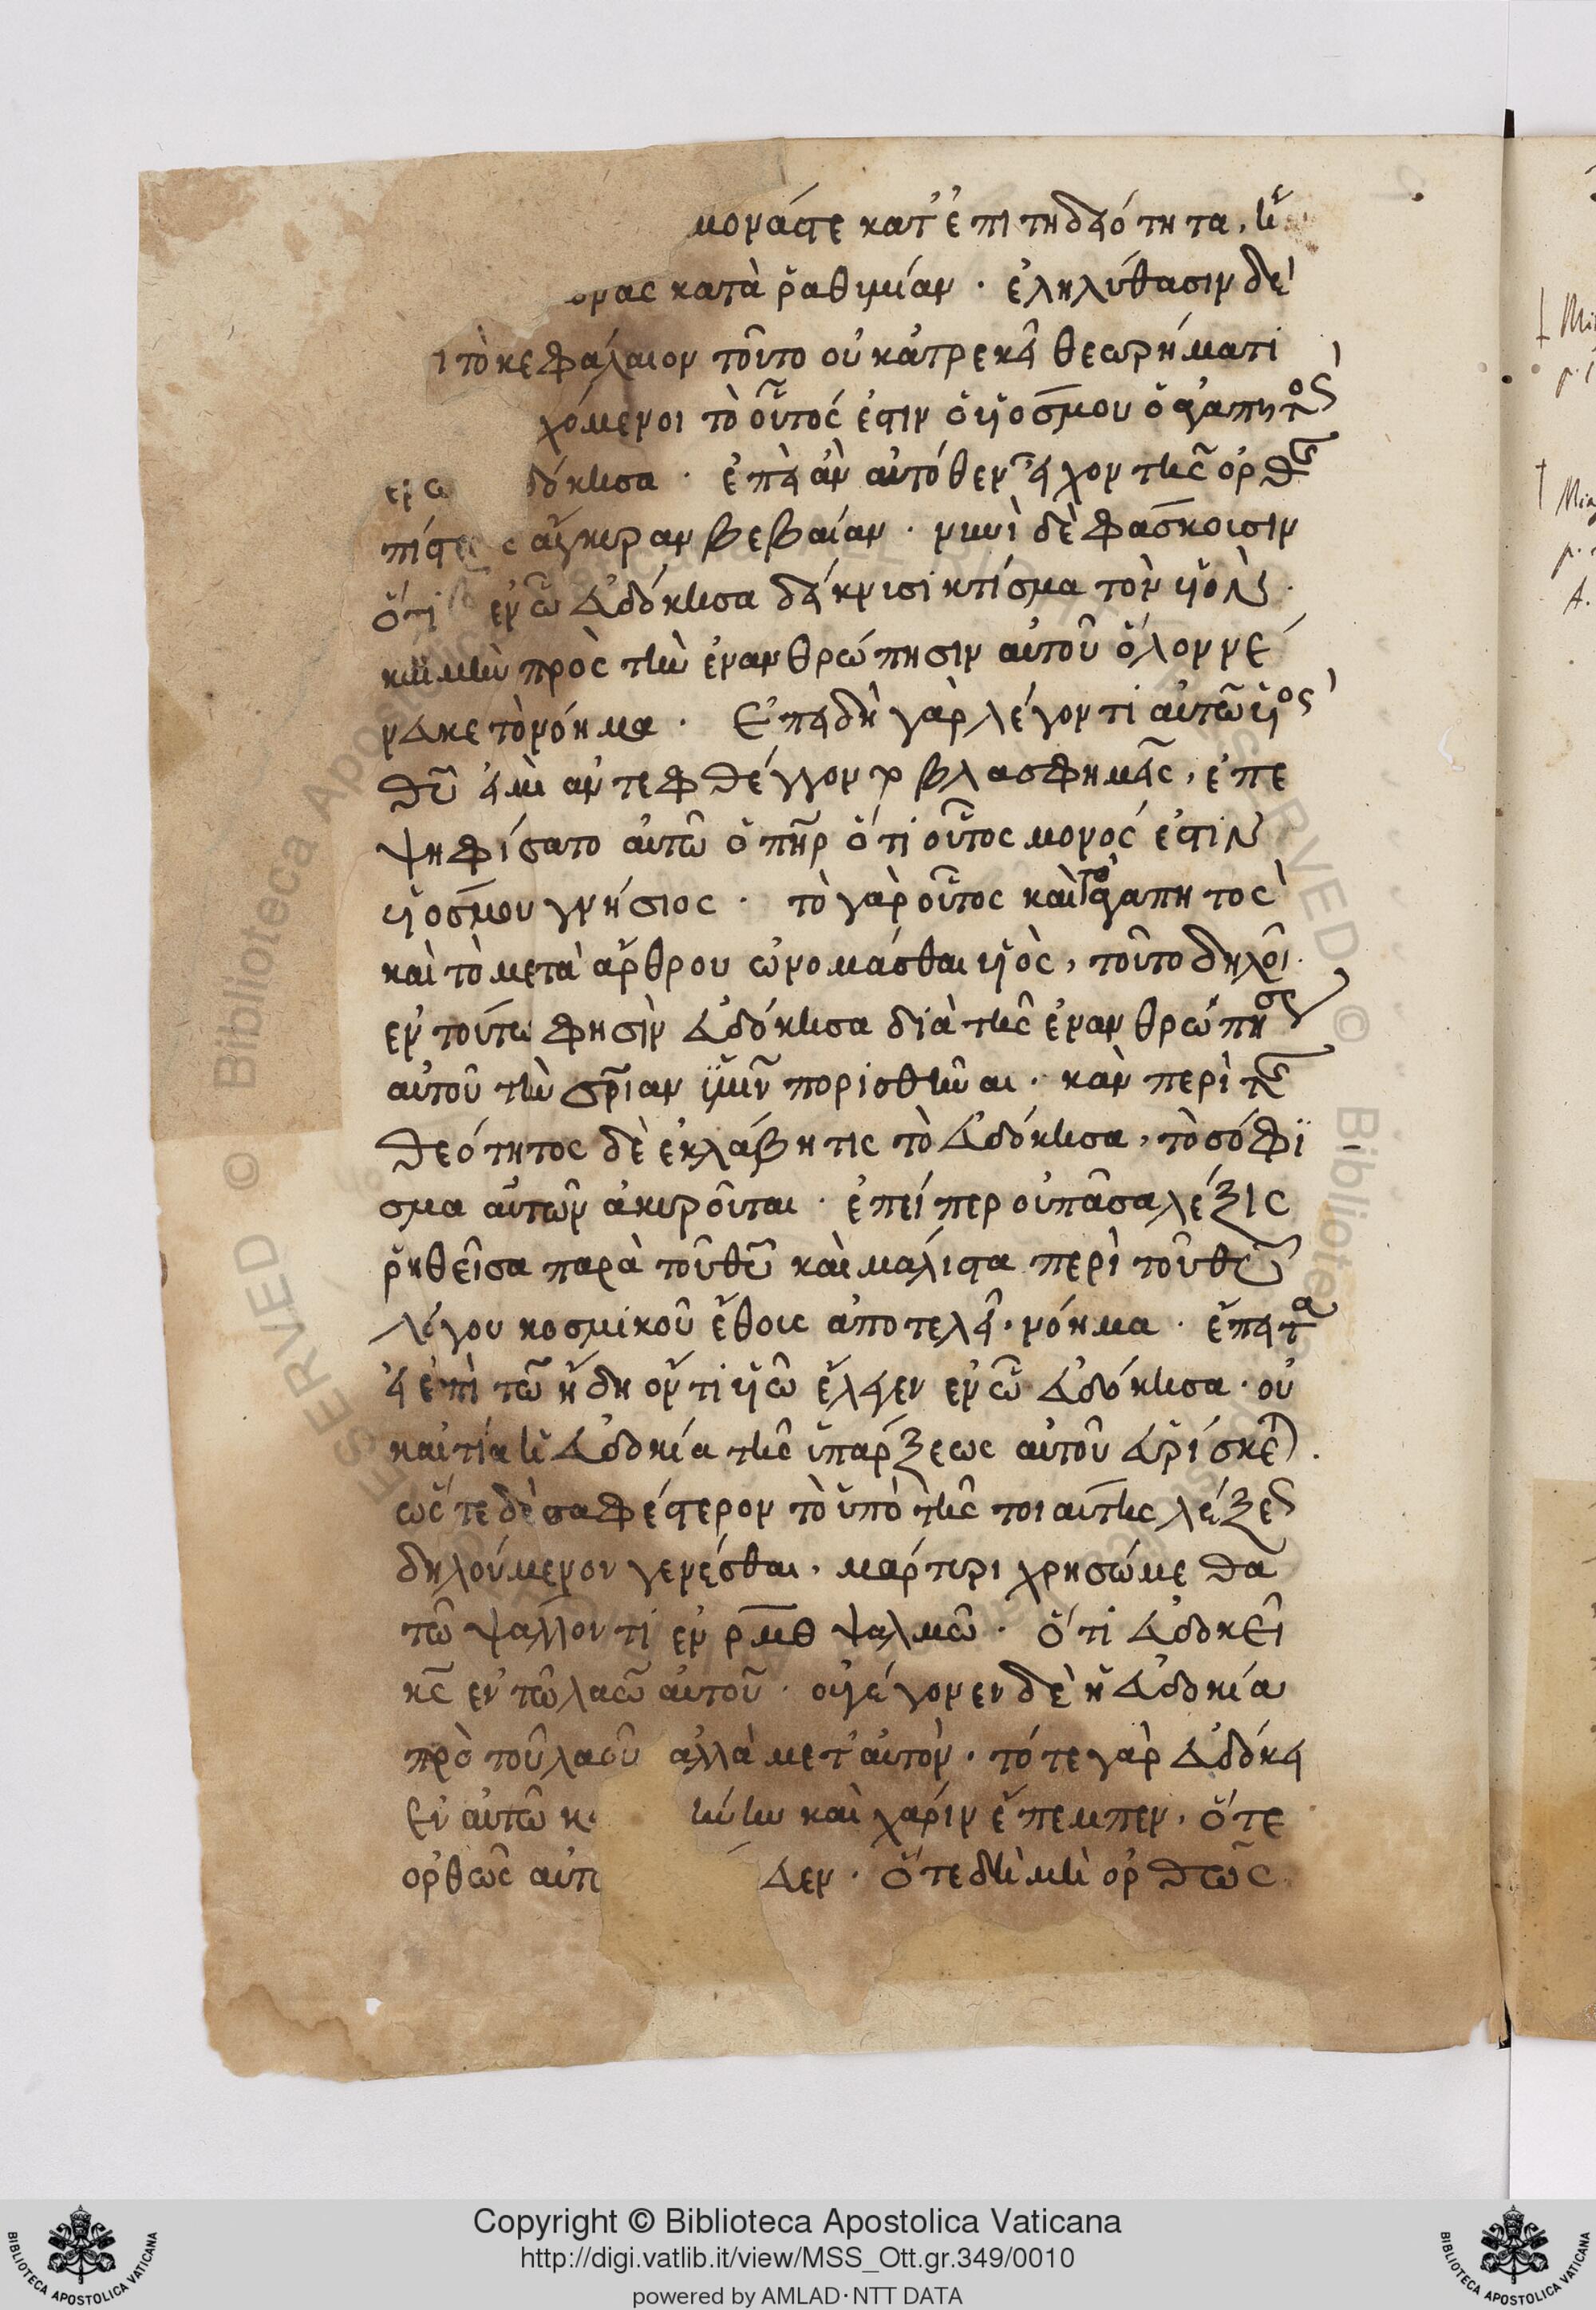 μονάστε κατ' ἐπιτηδειότητα, ἢ
ορας κατὰ ῥαθυμίαν · ἐληλύθασιν δὲ
ι τὸ κεφάλαιον τοῦτο οὐκ ἀτρεκεῖ θεωρήματι
χόμενοι τὸ οὗτός ἐστιν ὁ υἱός μου ὁ ἀγαπητός
εν ὧ δόκησα · ἐπεὶ ἂν αὐτόθεν εἶχον τῆς ὀρθῆς
πίστε ς ἄγκυραν βεβαίαν · νυνὶ δὲ φάσκουσιν
ὅτι ἐν ὧ εὐδόκησα δείκνυσι κτίσμα τὸν υἱόν ·
καὶ μὴν πρὸς τὴν ἐνανθρώπησιν αὐτοῦ ὅλον νέ
νευκε τὸ νόημα · Ἐπειδὴ γὰρ λέγοντι αὐτῶ υἱὸς
θῦ εἰμὶ ἀντεφθέγγοντο βλασφημεῖς, ἐπε
ψηφίσατο αὐτῶ ὁ πηρ ὅτι οὗτος μονός ἐστιν
υἱός μου γνήσιος · τὸ γὰρ οὗτος καὶ τὸ ἀγαπητὸς
καὶ τὸ μετὰ ἄρθρου ὠνομάσθαι υἱὸς, τοῦτο δηλοῖ ·
ἐν τούτω φησὶν εὐδόκησα διὰ τῆς ἐνανθρωπήσεως
αὐτοῦ τὴν σριαν ἡμῖν πορισθῆναι · κἂν περὶ τῆς
θεότητος δὲ ἐκλάβη τις τὸ εὐδόκησα, τὸ σόφι
σμα αὐτῶν ἀκυροῦται · ἐπείπερ οὐ πᾶσα λέξις
ῥηθεῖσα παρὰ τοῦ θῦ καὶ μάλιστα περὶ τοῦ θῦ
λόγου κοσμικοῦ ἔθους ἀποτελεῖ · νόημα · ἔπειτα
εἰ ἐπὶ τῶ ἤδη ὄντι υἱῶ ἔλεγεν ἐν ὧ εὐδόκησα · οὐ
καιτία ἡ εὐδοκία τῆς ὑπάρξεως αὐτοῦ εὑρίσκεται ·
ὥστε δὲ σαφέστερον τὸ ὑπὸ τῆς τοιαύτης λέξεως
δηλούμενον γενέσθαι, μάρτυρι χρησώμεθα
τῶ ψάλλοντι ἐν ρμθ ψαλμῶ · ὅτι εὐδοκεῖ
κς ἐν τῶ λαῶ αὐτοῦ · οὐ γέγονεν δὲ ἡ εὐδοκία
πρὸ τοῦ λαοῦ ἀλλὰ μετ' αὐτὸν · τότε γὰρ εὐδόκει
ἐν αὐτῶ κ καὶ χάριν ἔπεμπεν, ὅτε
ὀρθῶς ευεν · ὅτε δὴ μὴ ὀρθῶς
Copyright © Biblioteca Apostolica Vaticana
http://digi.vatlib.it/view/MSS_Ott.gr.349/0010
powered by AMLAD·NTT DATA